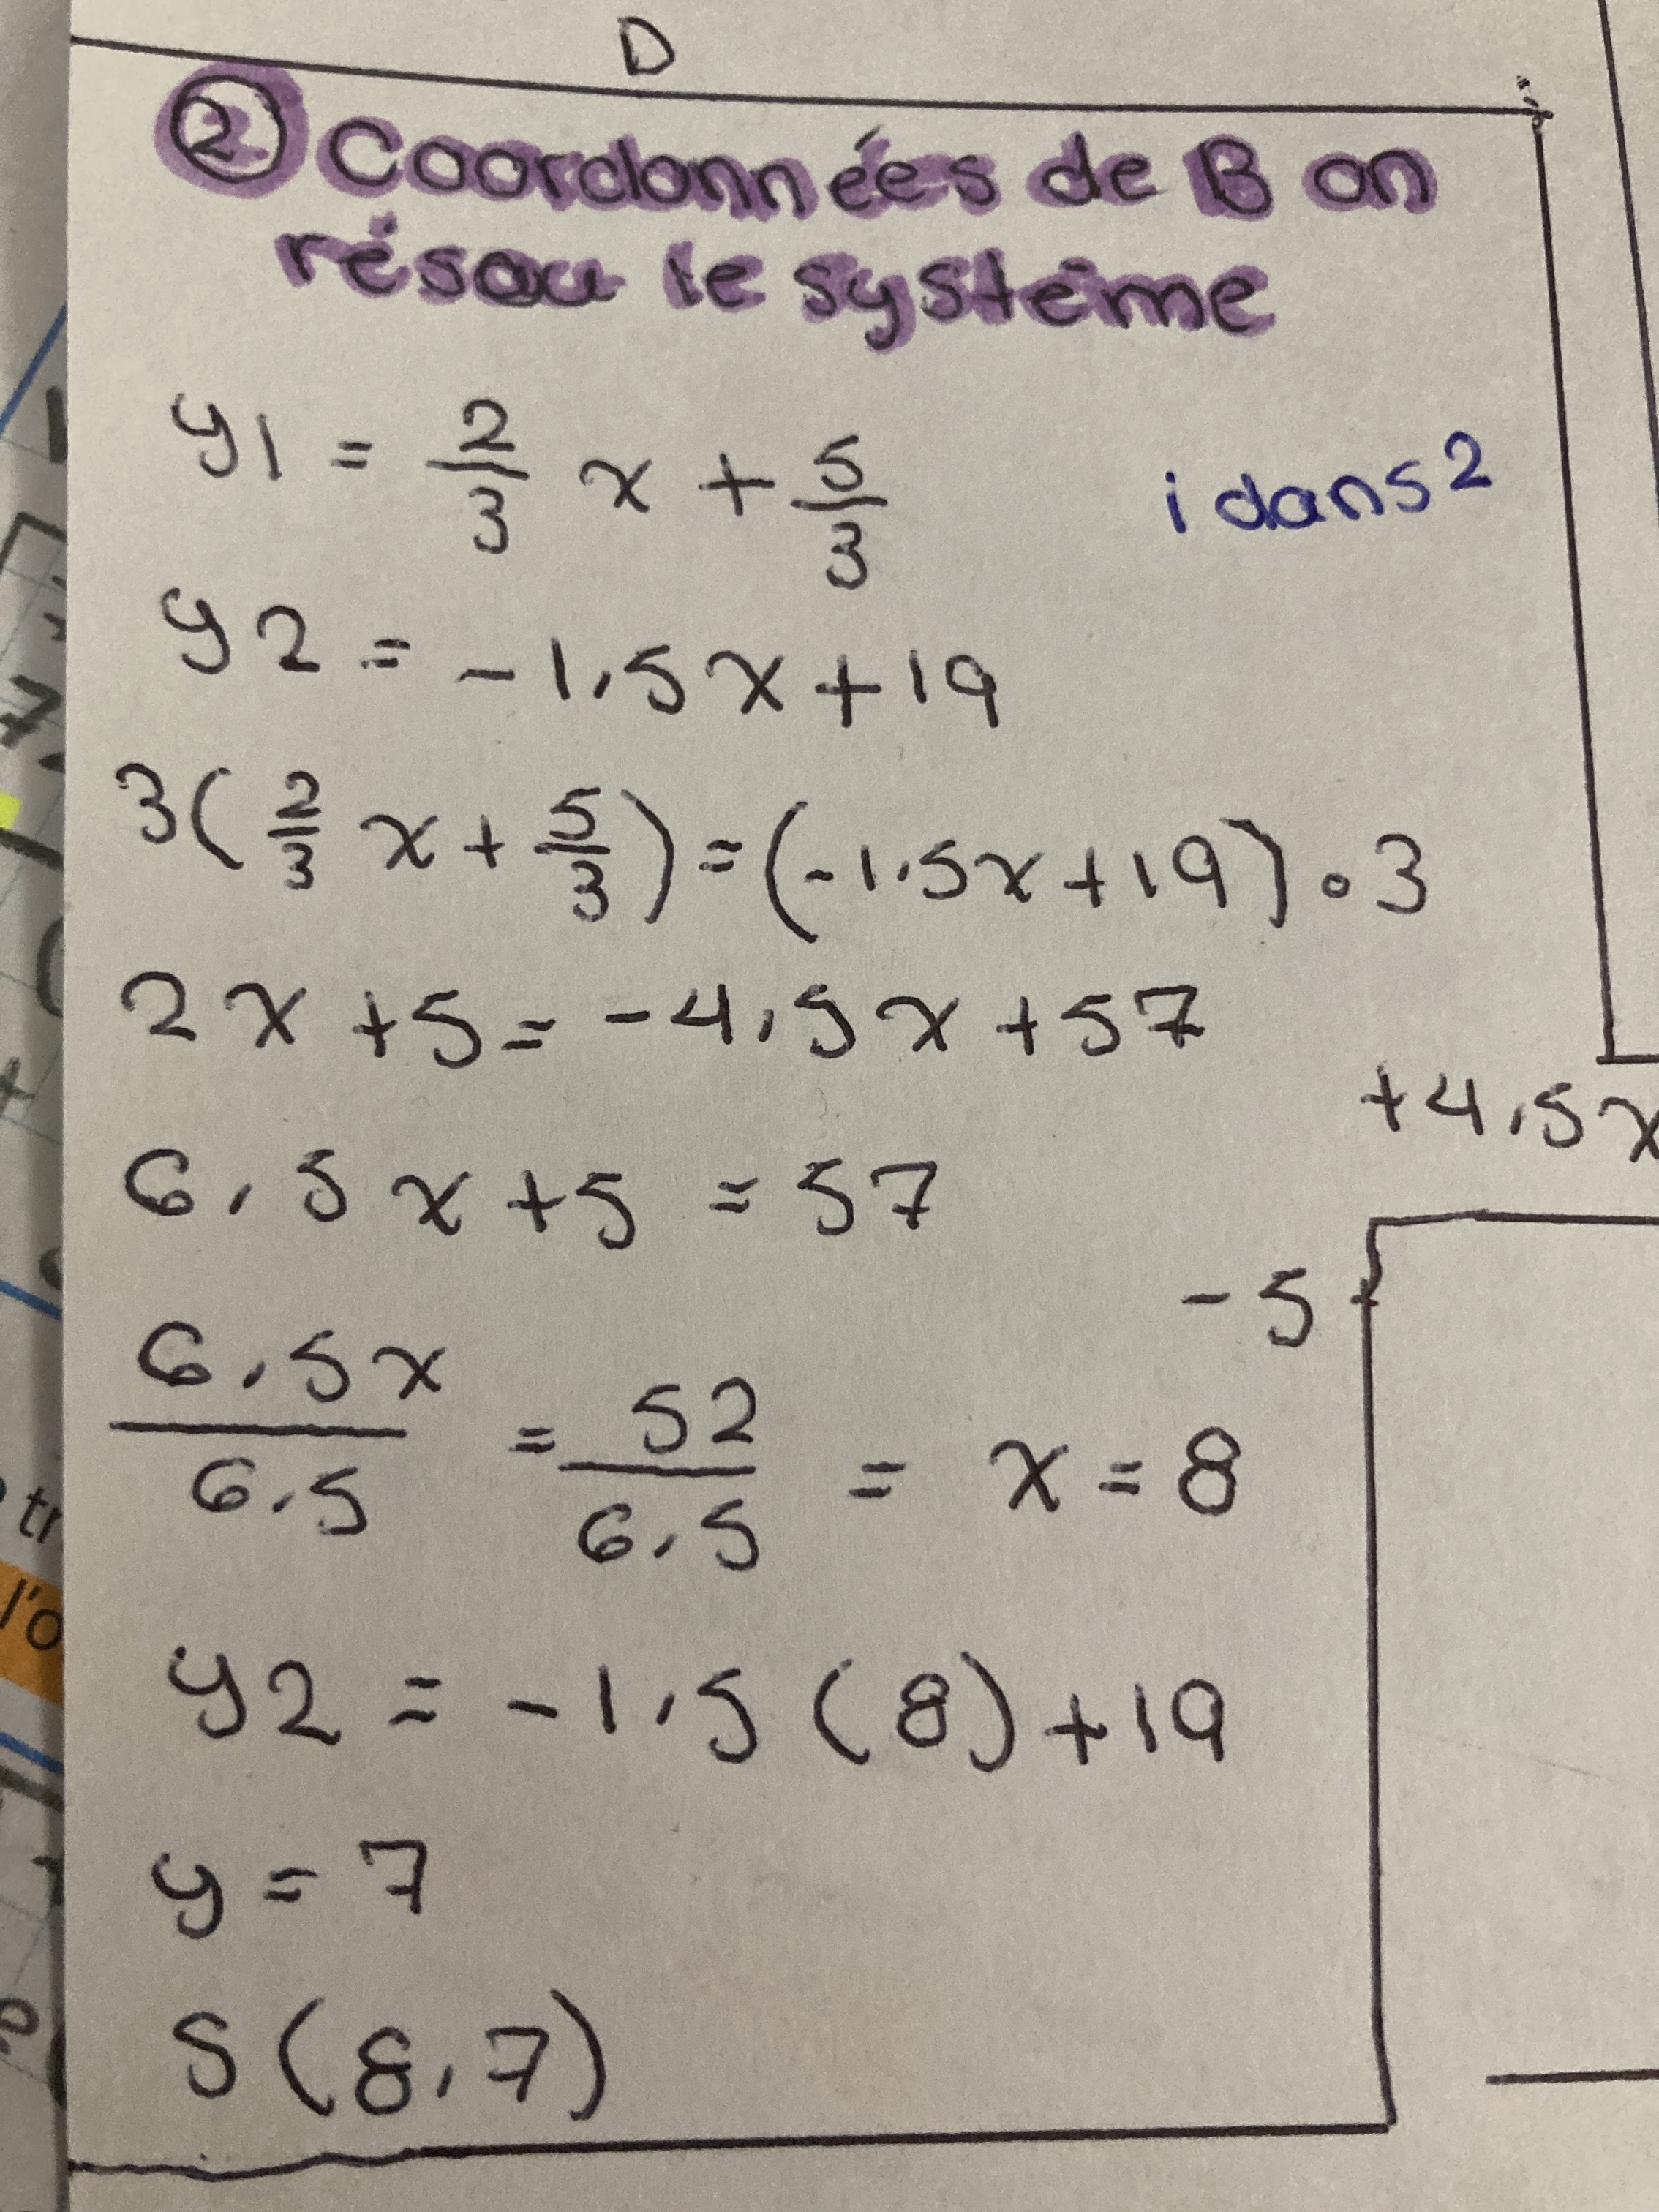 D
② Coordonnées de B on
résou le système
y1 = 2/3 x + 5/3
i dans 2
y2 = -1,5x+19
3(2/3 x + 5/3) = (-1,5x+19)•3
2x+5 = -4,5x+57
+4,5x
6,5x+5 = 57
-5
6,5x/6,5 = 52/6,5 = x = 8
y2 = -1,5(8)+19
y = 7
S(8,7)
tr
l'o